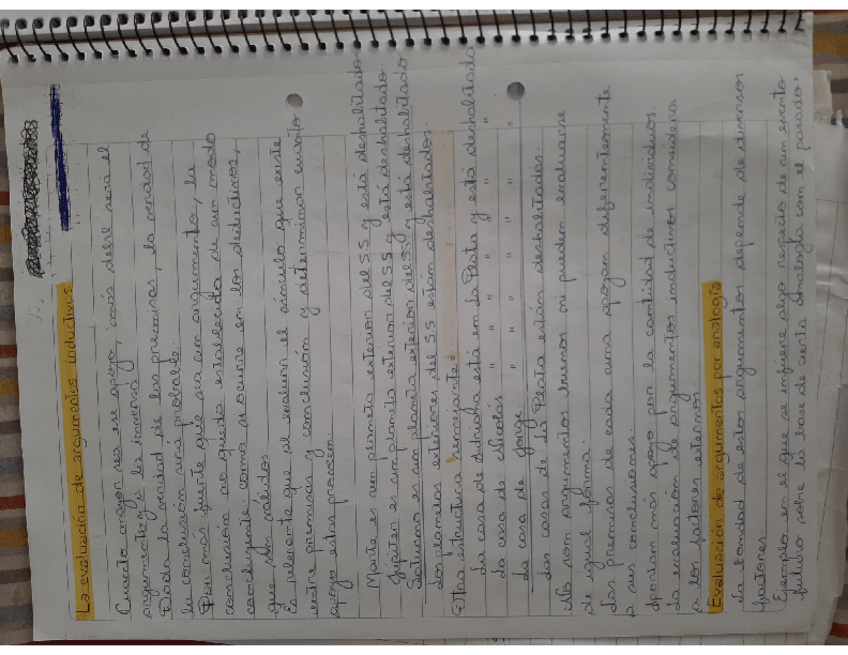 La evaluación de argumentos inductivos
Cuanto mayor sea ese apoyo, más débil será el
argumento y a la inversa
Dada la verdad de las premisas, la verdad de
la conclusión será probable.
Por más fuerte que sea un argumento, la
conclusión no queda establecida de un modo
concluyente como si ocurre en los deductivos,
que son válidos
Es relevante que al evaluar el vínculo que existe
entre premisas y conclusión y determinan cuanto
apoyo estas proveen
Marte es un planeta exterior del SS y está deshabitado
Júpiter es un planeta exterior del SS y está deshabitado.
Saturno es un planeta exterior del SS y está deshabitado
Los planetas exteriores del SS están deshabitados.
Otra estructura semejante:
La casa de Adriana está en La Plata y está deshabitada
La casa de Nicolás " " " " " " "
La casa de Jorge " " " " " " "
Las casas de La Plata están deshabitadas.
No son argumentos buenos ni pueden evaluarse
de igual forma.
Las premisas de cada una apoyan diferentemente
a sus conclusiones.
Aportan más apoyo por la cantidad de individuos.
La evaluación de argumentos inductivos considera
a los factores externos
Evaluación de argumentos por analogía
La bondad de estos argumentos depende de diversos
factores
Ejemplo en el que se infiere algo respecto de un evento
futuro sobre la base de cierta analogía con el pasado: